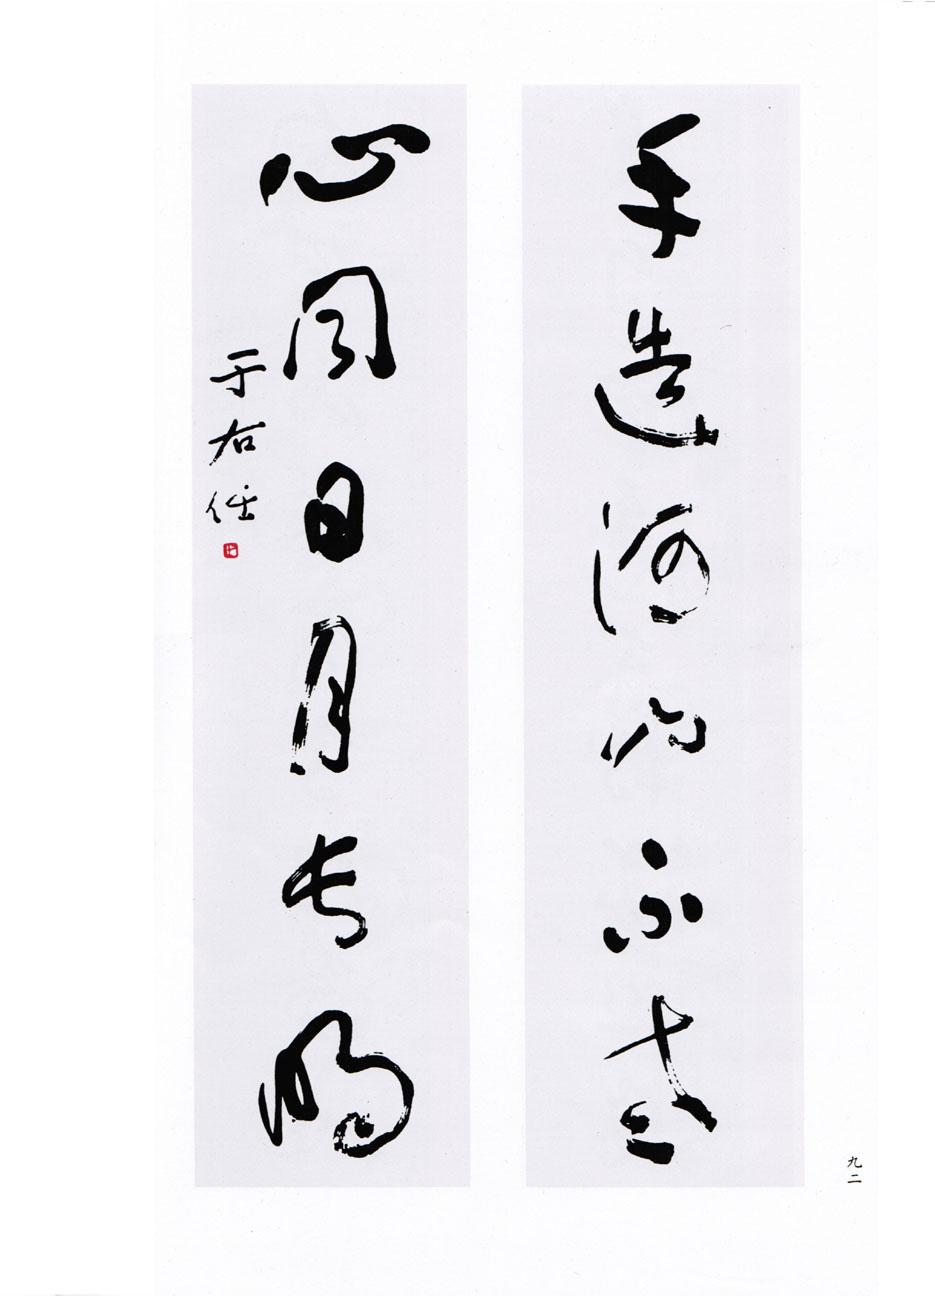 手造河山不老
心同日月長明
于右任
九二